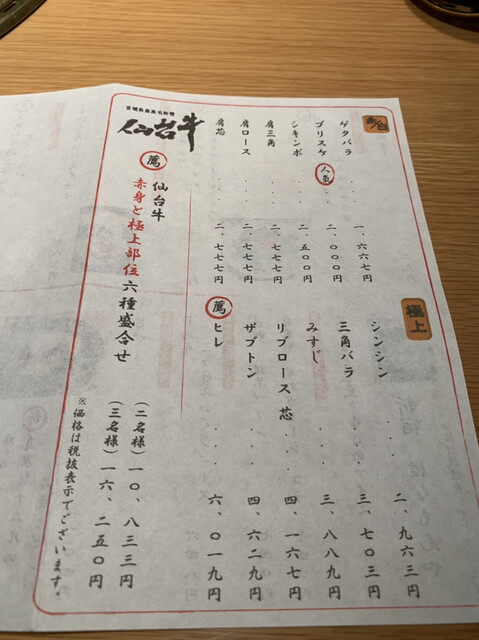 ゲタバラ・・一、六六七円
ブリスケ 人気・二、〇〇〇円
シキンボ・・二、五〇〇円
肩三角・・二、七七七円
肩ロース・・二、七七七円
肩芯・・二、七七七円
極上
シンシン・・二、九六三円
三角バラ・・三、七〇三円
みすじ・・三、八八九円
リブロース芯・・四、一六七円
ザブトン・・四、六二九円
薦 ヒレ・・六、〇一九円
宮城県産黒毛和種
仙台牛
薦 仙台牛
赤身と極上部位六種盛合せ
(二名様)一〇、八三三円
(三名様)一六、二五〇円
※価格は税抜表示でございます。